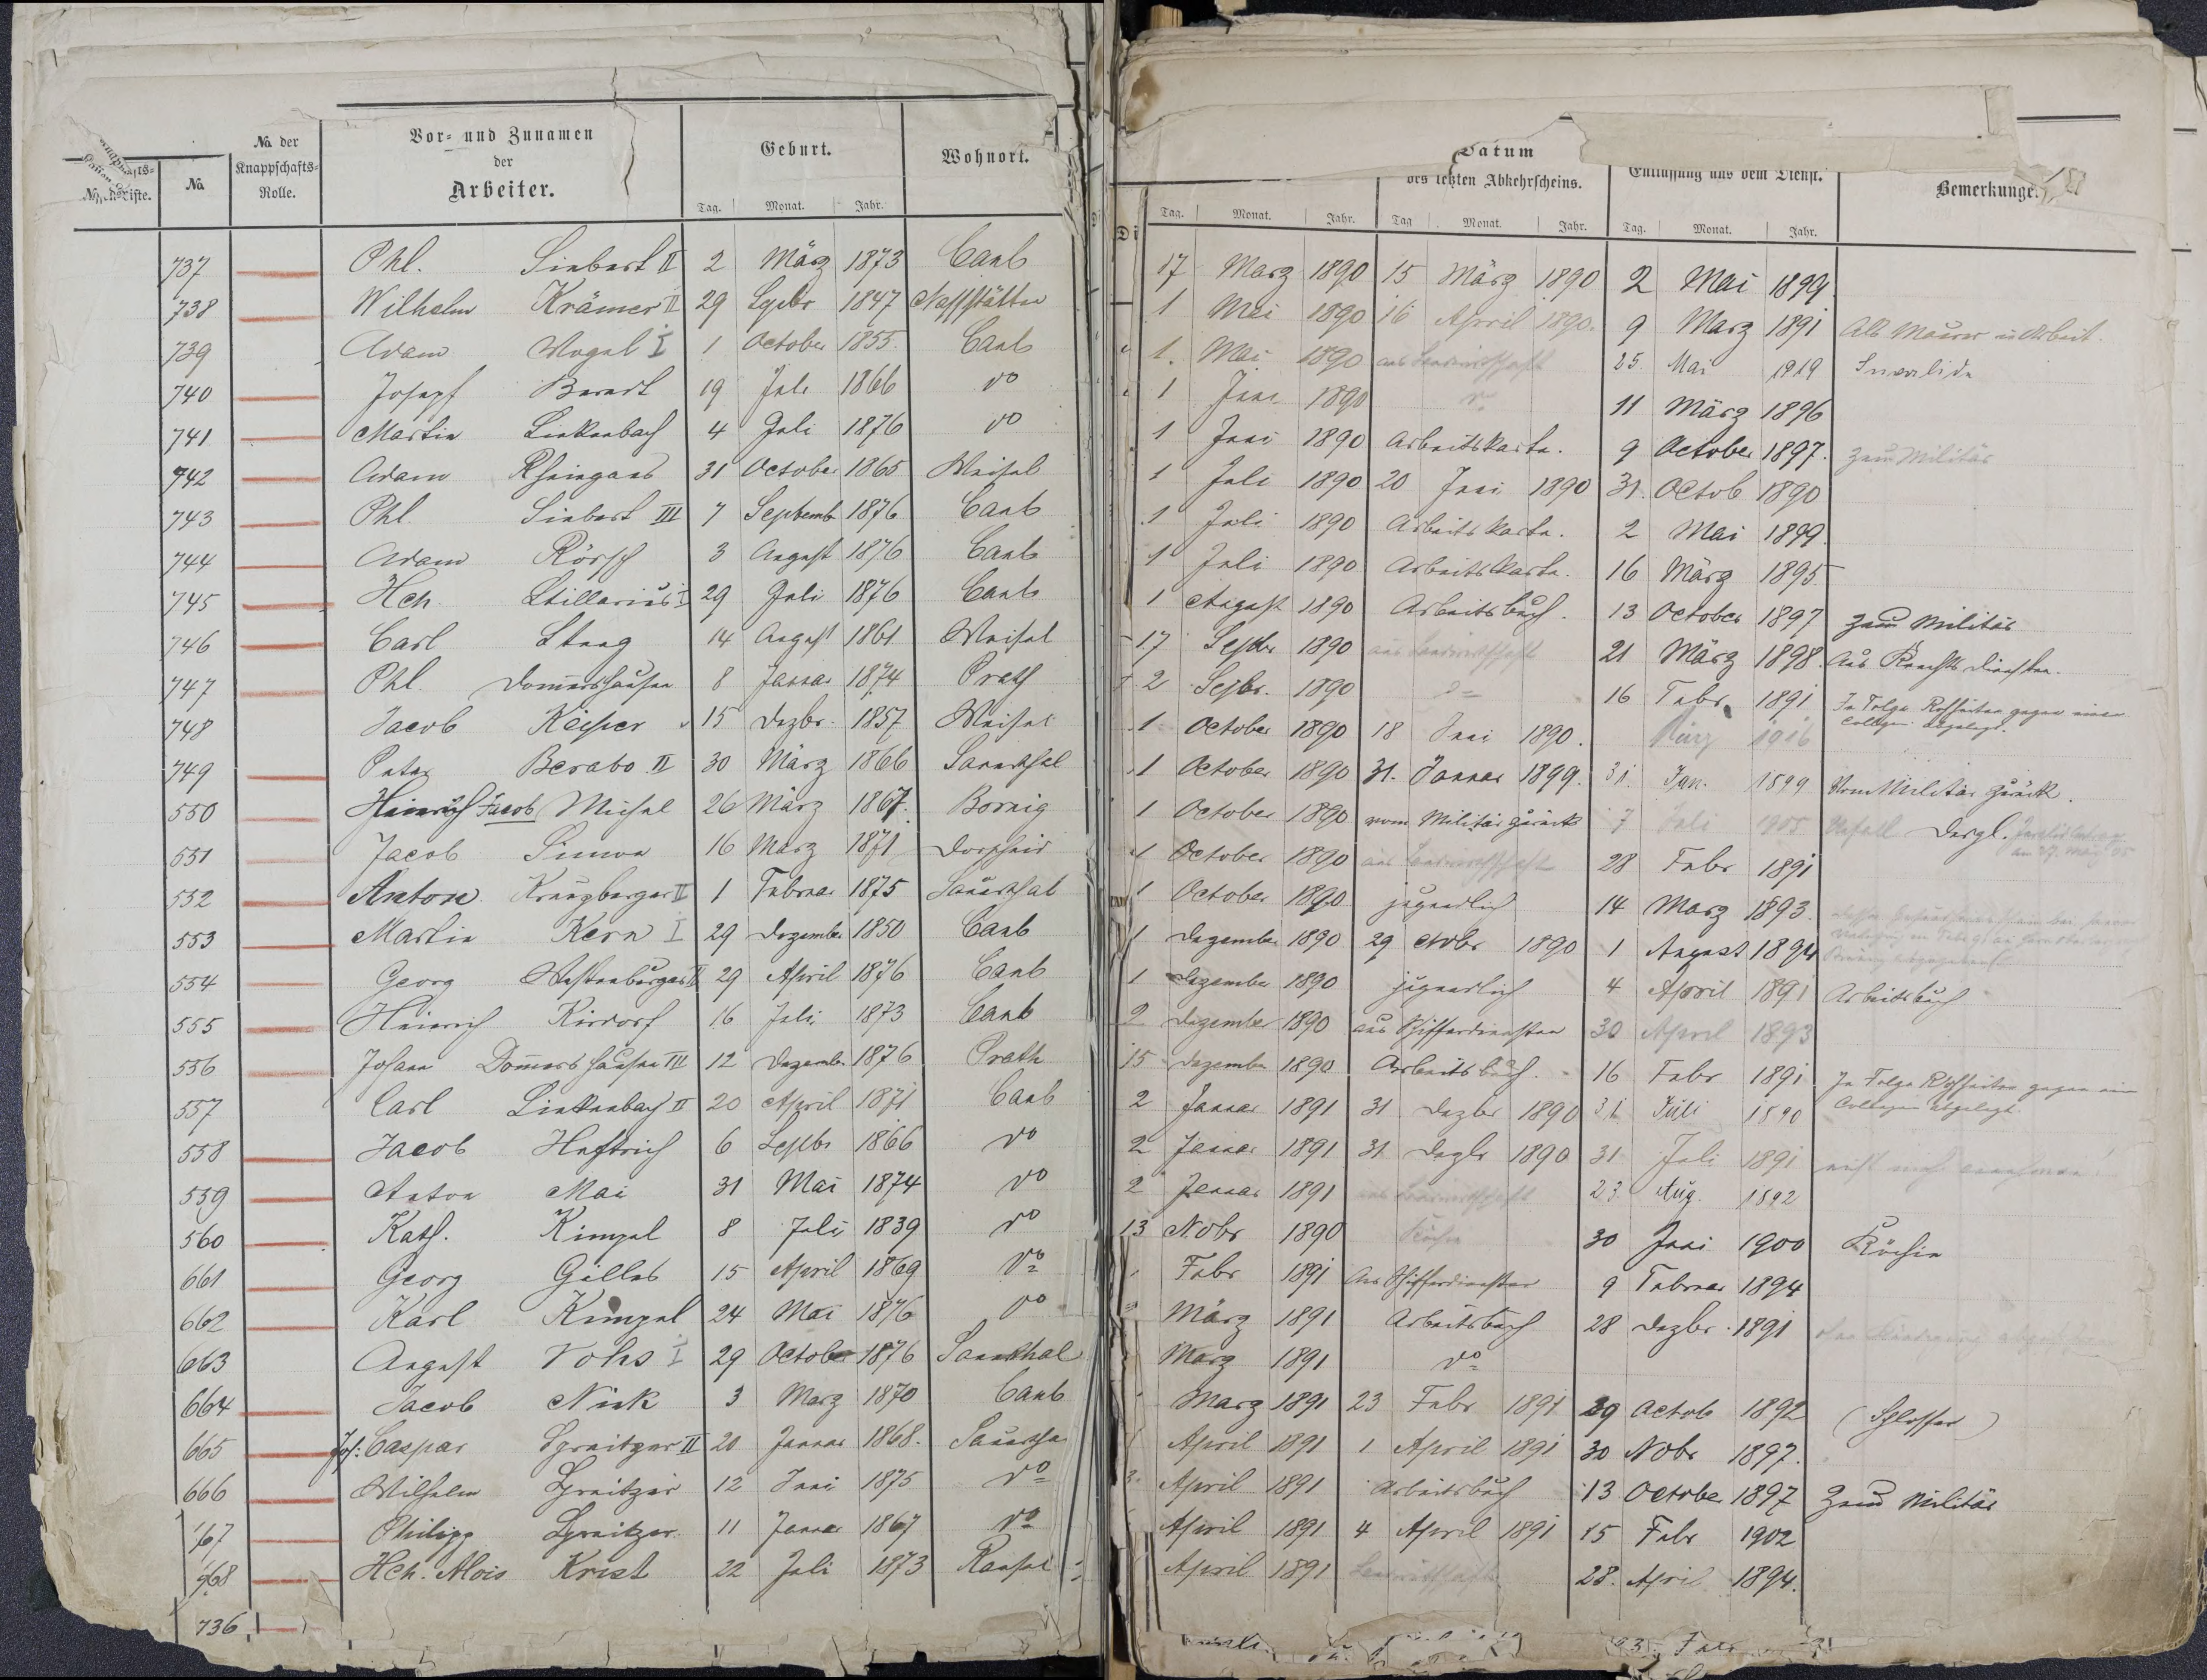 No. der Knappschafts-Rolle.
No.
Vor- und Zunamen der Arbeiter.
Geburt.
Wohnort.
Tag. Monat. Jahr.
Datum
des letzten Abkehrscheins.
Entlassung aus dem Dienst.
Bemerkunge
Tag. Monat. Jahr. Tag Monat. Jahr. Tag. Monat. Jahr.
737 Phl. Siebert II 2 März 1873 Caub 17 Marz 1890 15 März 1890 2 Mai 1899
738 Wilhelm Krämer II 29 Sepbr 1847 Nassstätten 1 Mai 1890 16 April 1890. 9 Marz 1891 Als Maurer in Arbeit.
739 Adam Vogel I 1 October 1855. Caub 1. Mai 1890 aus Landwirthschaft 25. Mai 1919 Invalide
740 Joseph Berard 19 Juli 1866 do 1 Juni 1890 do 11 März 1896
741 Martin Linkenbach 4 Juli 1876 do 1 Juni 1890 Arbeitskarte. 9 October 1897. zum Militär
742 Adam Rheingans 31 October 1865 Weisel 1 Juli 1890 20 Juni 1890 31. Octob 1890
743 Phl. Siebert III 7 Septemb 1876 Caub 1 Juli 1890 Arbeitskarte. 2 Mai 1899.
744 Adam Rörsch 3 August 1876 Caub 1 Juli 1890 Arbeitskarte. 16 März 1895
745 Hch. Stillarius I 29 Juli 1876 Caub 1 August 1890 Arbeitsbuch. 13 October 1897 zum Militär
746 Carl Staag 14 August 1861 Weisel 17 Septbr 1890 aus Landwirthschaft 21 März 1898. Aus Knechts Diensten.
747 Phl. Dommershausen 8 Januar 1874 Prath 2 Sepbr. 1890 do 16 Febr. 1891 In Folge Rohheiten gegen einen
Collegen abgelegt.
748 Jacob Keiper 15 Dezbr. 1857 Weisel 1 October 1890 18 Juni 1890. März 1916
749 Peter Berabo II 30 März 1866 Sauerthal 1 October 1890 31. Januar 1899. 31. Jan. 1899 Vom Militär zurück.
550 Heinrich Jacob Michel 26 März 1867. Bornig 1 October 1890 vom Militär zurück 7 Juli 1905 Unfall Dergl.
551 Jacob Simon 16 März 1871 Dorscheid 1 October 1890 aus Landwirthschaft 28 Febr 1891
552 Anton Kreuzberger II 1 Februar 1875 Sauerthal 1 October 1890 jugendlich 14 Marz 1893.
553 Martin Kern I 29 Dezember 1850 Caub 1 Dezember 1890 29 Octbr 1890 1 August 1894
554 Georg Westenburger II 29 April 1876 Caub 1 Dezember 1890 jugendlich 4 April 1891 Arbeitsbuch
555 Heinrich Kirdorf 16 Juli 1873 Caub 2 Dezember 1890 aus Schifferdiensten 30 April 1893
556 Johann Dommershausen III 12 Dezember 1876 Prath 15 Dezember 1890 Arbeitsbuch. 16 Febr 1891 In Folge Rohheiten gegen ein
Collegen abgelegt.
557 Carl Linkenbach II 20 April 1871 Caub 2 Januar 1891 31 Dezber 1890 31 Juli 1890
558 Jacob Heftrich 6 Sepbr 1866 do 2 Januar 1891 31 Dezbr 1890 31 Juli 1891 nicht mehr annehmen!
559 Anton Mai 31 Mai 1874 do 2 Januar 1891 aus Landwirthschaft 23. Aug. 1892
560 Kath. Kimpel 8 Juli 1839 do 13 Nobr 1890 Köchin 30 Juni 1900 Köchin
661 Georg Gilles 15 April 1869 do Febr 1891 Aus Schifferdiensten 9 Februar 1894
662 Karl Kimpel 24 Mai 1876 do März 1891 Arbeitsbuch 28 Dezbr. 1891
663 August Vohs I 29 October 1876 Sauerthal Marz 1891 do
664 Jacob Nick 3 Marz 1870 Caub Marz 1891 23 Febr 1891 29 Octob 1892 (Schlosser)
665 Jos: Caspar Spreitzer II 20 Januar 1868. Sauertha April 1891 1 April 1891 30 Nobr 1897.
666 Wilhelm Spreitzer 12 Juni 1875 do 3. April 1891 Arbeitsbuch 13 October 1897 Zum Militär
167 Philipp Spreitzer. 11 Januar 1867 do April 1891 4 April 1891 15 Febr 1902
168 Hch. Alois Krist 22 Juli 1873 Ransel April 1891 Landwirthschaft 28. April 1894.
736